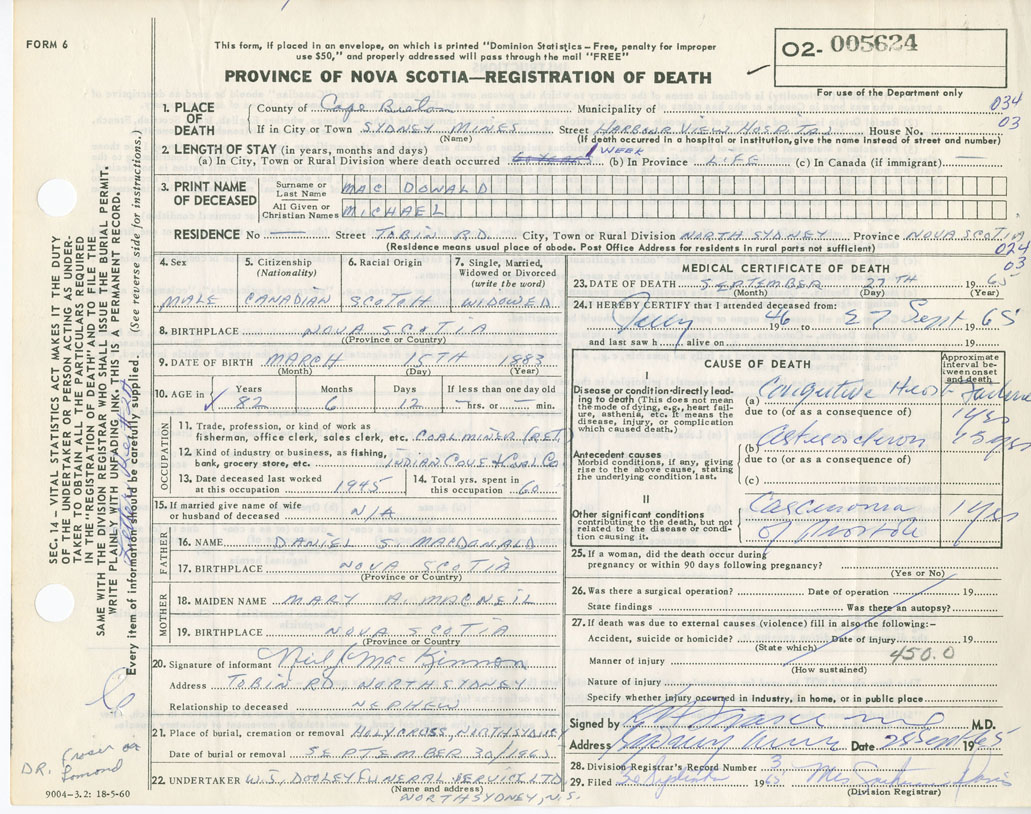 FORM 6
This form, if placed in an envelope, on which is printed "Dominion Statistics – Free, penalty for improper
use $50," and properly addressed will pass through the mail "FREE"
PROVINCE OF NOVA SCOTIA—REGISTRATION OF DEATH
O2- 005624
For use of the Department only
034
03
1. PLACE OF DEATH
County of Cape Breton Municipality of
If in City or Town SYDNEY MINES Street HARBOUR VIEW HOSPITAL House No.
(Name) (If death occurred in a hospital or institution, give the name instead of street and number)
2. LENGTH OF STAY (in years, months and days)
(a) In City, Town or Rural Division where death occurred 1 WEEK (b) In Province LIFE (c) In Canada (if immigrant) —
3. PRINT NAME OF DECEASED
Surname or Last Name MAC DONALD
All Given or Christian Names MICHAEL
RESIDENCE No — Street TOBIN RD. City, Town or Rural Division NORTH SYDNEY Province NOVA SCOTIA
(Residence means usual place of abode. Post Office Address for residents in rural parts not sufficient)
024
03
4. Sex MALE
5. Citizenship (Nationality) CANADIAN
6. Racial Origin SCOTCH
7. Single, Married, Widowed or Divorced (write the word) WIDOWED
8. BIRTHPLACE NOVA SCOTIA
(Province or Country)
9. DATE OF BIRTH MARCH 15TH 1883
(Month) (Day) (Year)
10. AGE in Years 82 Months 6 Days 12 If less than one day old — hrs. or — min.
OCCUPATION
11. Trade, profession or kind of work as
fisherman, office clerk, sales clerk, etc. COAL MINER (RET
12. Kind of industry or business, as fishing,
bank, grocery store, etc. INDIAN COVE COAL CO
13. Date deceased last worked at this occupation 1945
14. Total yrs. spent in this occupation 60
15. If married give name of wife or husband of deceased N/A
FATHER
16. NAME DANIEL S. MACDONALD
17. BIRTHPLACE NOVA SCOTIA
(Province or Country)
MOTHER
18. MAIDEN NAME MARY A. MACNEIL
19. BIRTHPLACE NOVA SCOTIA
(Province or Country)
20. Signature of informant Neil J. MacKinnon
Address TOBIN RD, NORTH SYDNEY
Relationship to deceased NEPHEW
21. Place of burial, cremation or removal HOLY CROSS, NORTH SYDNEY
Date of burial or removal SEPTEMBER 30/1965
22. UNDERTAKER W.S. DOOLEY FUNERAL SERVICE LTD
(Name and address)
NORTH SYDNEY, N.S.
MEDICAL CERTIFICATE OF DEATH
23. DATE OF DEATH SEPTEMBER 27TH 1965
(Month) (Day) (Year)
24. I HEREBY CERTIFY that I attended deceased from:
July 1946 to 27 Sept 1965
and last saw h alive on 19
CAUSE OF DEATH
Approximate interval between onset and death
I
Disease or condition directly leading to death (This does not mean
the mode of dying, e.g., heart failure, asthenia, etc. It means the
disease, injury, or complication which caused death.)
(a) Congestive Heart Failure 1 yr
due to (or as a consequence of)
Antecedent causes
Morbid conditions, if any, giving rise to the above cause, stating
the underlying condition last.
(b) 15 yrs
due to (or as a consequence of)
(c)
II
Other significant conditions
contributing to the death, but not related to the disease or condition causing it.
Carcinoma of Prostate 1 yr
25. If a woman, did the death occur during
pregnancy or within 90 days following pregnancy?
(Yes or No)
26. Was there a surgical operation? Date of operation 19
State findings Was there an autopsy?
27. If death was due to external causes (violence) fill in also the following:-
Accident, suicide or homicide? Date of injury 19
(State which)
450.0
Manner of injury
(How sustained)
Nature of injury
Specify whether injury occurred in industry, in home, or in public place
Signed by M.D.
Address Sydney Mines Date 28 Sept 1965
28. Division Registrar's Record Number 3
29. Filed 1965
(Division Registrar)
SEC. 14 – VITAL STATISTICS ACT MAKES IT THE DUTY
OF THE UNDERTAKER OR PERSON ACTING AS UNDER-
TAKER TO OBTAIN ALL THE PARTICULARS REQUIRED
IN THE "REGISTRATION OF DEATH" AND TO FILE THE
SAME WITH THE DIVISION REGISTRAR WHO SHALL ISSUE THE BURIAL PERMIT.
WRITE PLAINLY WITH UNFADING INK. THIS IS A PERMANENT RECORD.
Every item of information should be carefully supplied. (See reverse side for instructions.)
DR. Fraser or
Lomond
9004-3.2: 18-5-60